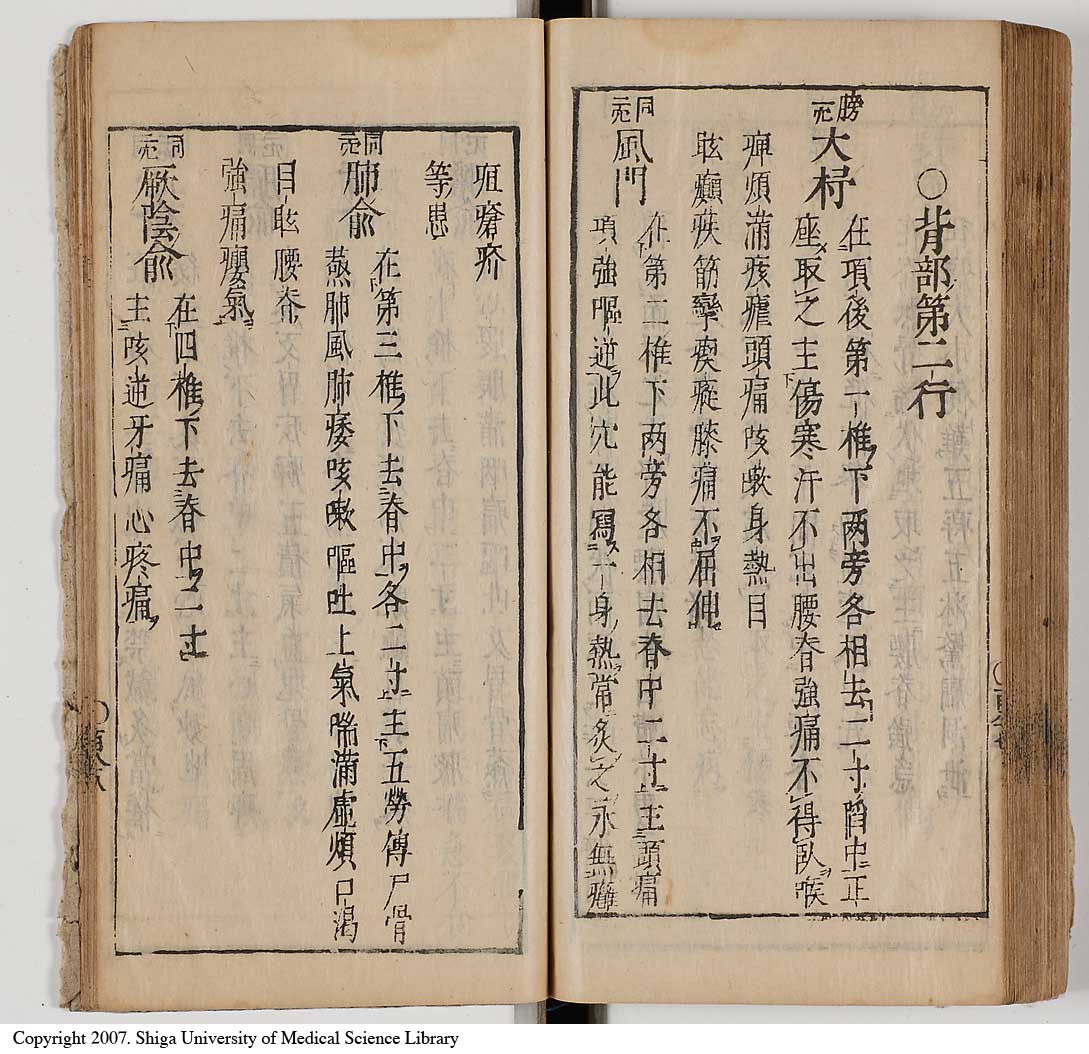 ○背部第二行
膀穴 大杼 在項後第一椎下両旁各相去二寸陷中正
座取之主傷寒汗不出腰脊強痛不得臥喉
痺煩滿痎瘧頭痛咳嗽身熱目
眩癲疾筋攣瘈瘲膝痛不屈伸
同穴 風門 在第二椎下両旁各相去脊中二寸主頭痛
項強嘔逆此穴能冩一身熱常炙之永無癰
疽瘡疥
等患
同穴 肺俞 在第三椎下去脊中各二寸主五勞傳尸骨
蒸肺風肺痿咳嗽嘔吐上氣喘滿虛煩口渴
目眩腰脊
強痛癭氣
同穴 厥陰俞 在四椎下去脊中二寸
主咳逆牙痛心疼痛
Copyright 2007. Shiga University of Medical Science Library